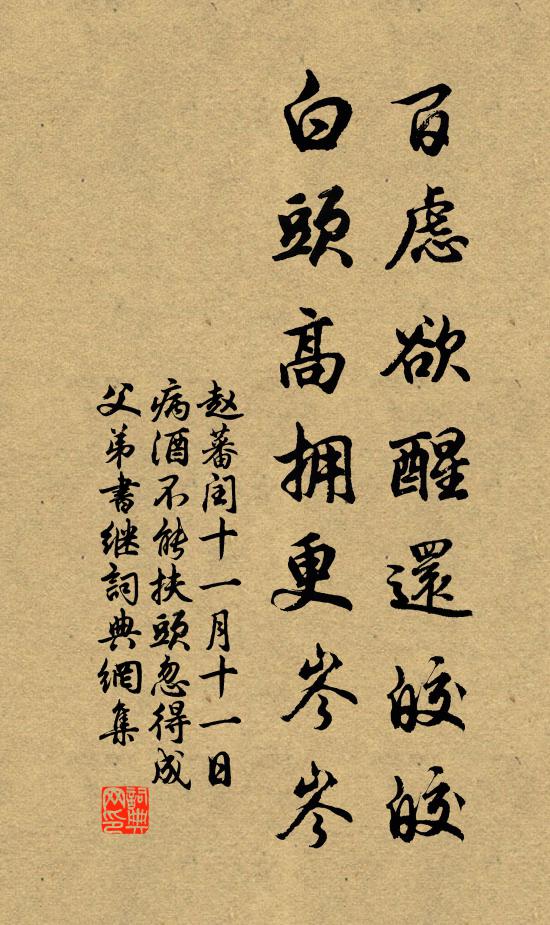 百慮欲醒還皎皎
白頭高拥更岑岑
赵蕃闰十一月十一日
病酒不能扶頭忽得成
父弟書继詞典網集
詞典网印